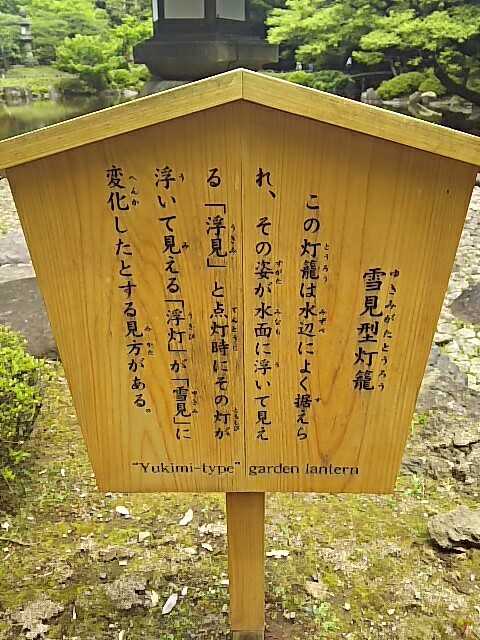 雪見型灯籠
ゆきみがたとうろう
この灯籠は水辺によく据えら
れ、その姿が水面に浮いて見え
る「浮見」と点灯時にその灯が
浮いて見える「浮灯」が「雪見」に
変化したとする見方がある。
"Yukimi-type" garden lantern